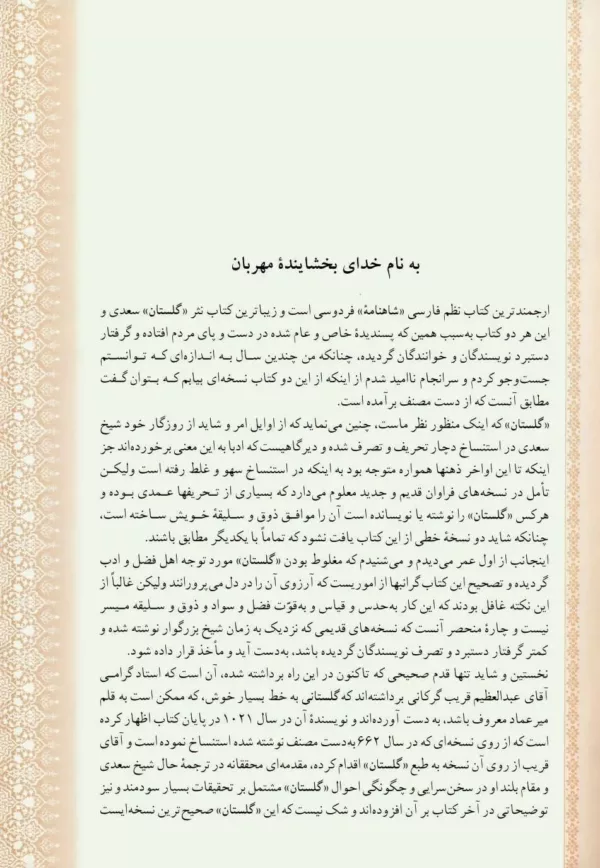 به نام خدای بخشایندهٔ مهربان
ارجمندترین کتاب نظم فارسی «شاهنامهٔ» فردوسی است و زیباترین کتاب نثر «گلستان» سعدی و
این هر دو کتاب به‌سبب همین که پسندیدهٔ خاص و عام شده در دست و پای مردم افتاده و گرفتار
دستبرد نویسندگان و خوانندگان گردیده، چنانکه من چندین سال به اندازه‌ای که توانستم
جست‌وجو کردم و سرانجام ناامید شدم از اینکه از این دو کتاب نسخه‌ای بیابم که بتوان گفت
مطابق آنست که از دست مصنف برآمده است.
«گلستان» که اینک منظور نظر ماست، چنین می‌نماید که از اوایل امر و شاید از روزگار خود شیخ
سعدی در استنساخ دچار تحریف و تصرف شده و دیرگاهیست که ادبا به این معنی برخورده‌اند جز
اینکه تا این اواخر ذهنها همواره متوجه بود به اینکه در استنساخ سهو و غلط رفته است ولیکن
تأمل در نسخه‌های فراوان قدیم و جدید معلوم می‌دارد که بسیاری از تحریفها عمدی بوده و
هرکس «گلستان» را نوشته یا نویسانده است آن را موافق ذوق و سلیقهٔ خویش ساخته است،
چنانکه شاید دو نسخهٔ خطی از این کتاب یافت نشود که تماماً با یکدیگر مطابق باشند.
اینجانب از اول عمر می‌دیدم و می‌شنیدم که مغلوط بودن «گلستان» مورد توجه اهل فضل و ادب
گردیده و تصحیح این کتاب گرانبها از اموریست که آرزوی آن را در دل می‌پرورانند ولیکن غالباً از
این نکته غافل بودند که این کار به‌حدس و قیاس و به‌قوّت فضل و سواد و ذوق و سلیقه میسر
نیست و چارهٔ منحصر آنست که نسخه‌های قدیمی که نزدیک به زمان شیخ بزرگوار نوشته شده و
کمتر گرفتار دستبرد و تصرف نویسندگان گردیده باشد، به‌دست آید و مأخذ قرار داده شود.
نخستین و شاید تنها قدم صحیحی که تاکنون در این راه برداشته شده، آن است که استاد گرامی
آقای عبدالعظیم قریب گرکانی برداشته‌اند که گلستانی به خط بسیار خوش، که ممکن است به قلم
میرعماد معروف باشد، به دست آورده‌اند و نویسندهٔ آن در سال ۱۰۲۱ در پایان کتاب اظهار کرده
است که از روی نسخه‌ای که در سال ۶۶۲ به‌دست مصنف نوشته شده استنساخ نموده است و آقای
قریب از روی آن نسخه به طبع «گلستان» اقدام کرده، مقدمه‌ای محققانه در ترجمهٔ حال شیخ سعدی
و مقام بلند او در سخن‌سرایی و چگونگی احوال «گلستان» مشتمل بر تحقیقات بسیار سودمند و نیز
توضیحاتی در آخر کتاب بر آن افزوده‌اند و شک نیست که این «گلستان» صحیح‌ترین نسخه‌ایست